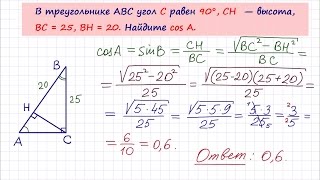 В треугольнике ABC угол C равен 90°, CH — высота,
BC = 25, BH = 20. Найдите cos A.
cosA = sinB = CH/BC = √(BC² − BH²)/BC =
= √(25² − 20²)/25 = √((25−20)(25+20))/25 =
= √(5·45)/25 = √(5·5·9)/25 = 5·3/25₅ = ³3/5² =
= 6/10 = 0,6.
Ответ: 0,6.
B
20
25
H
A
C